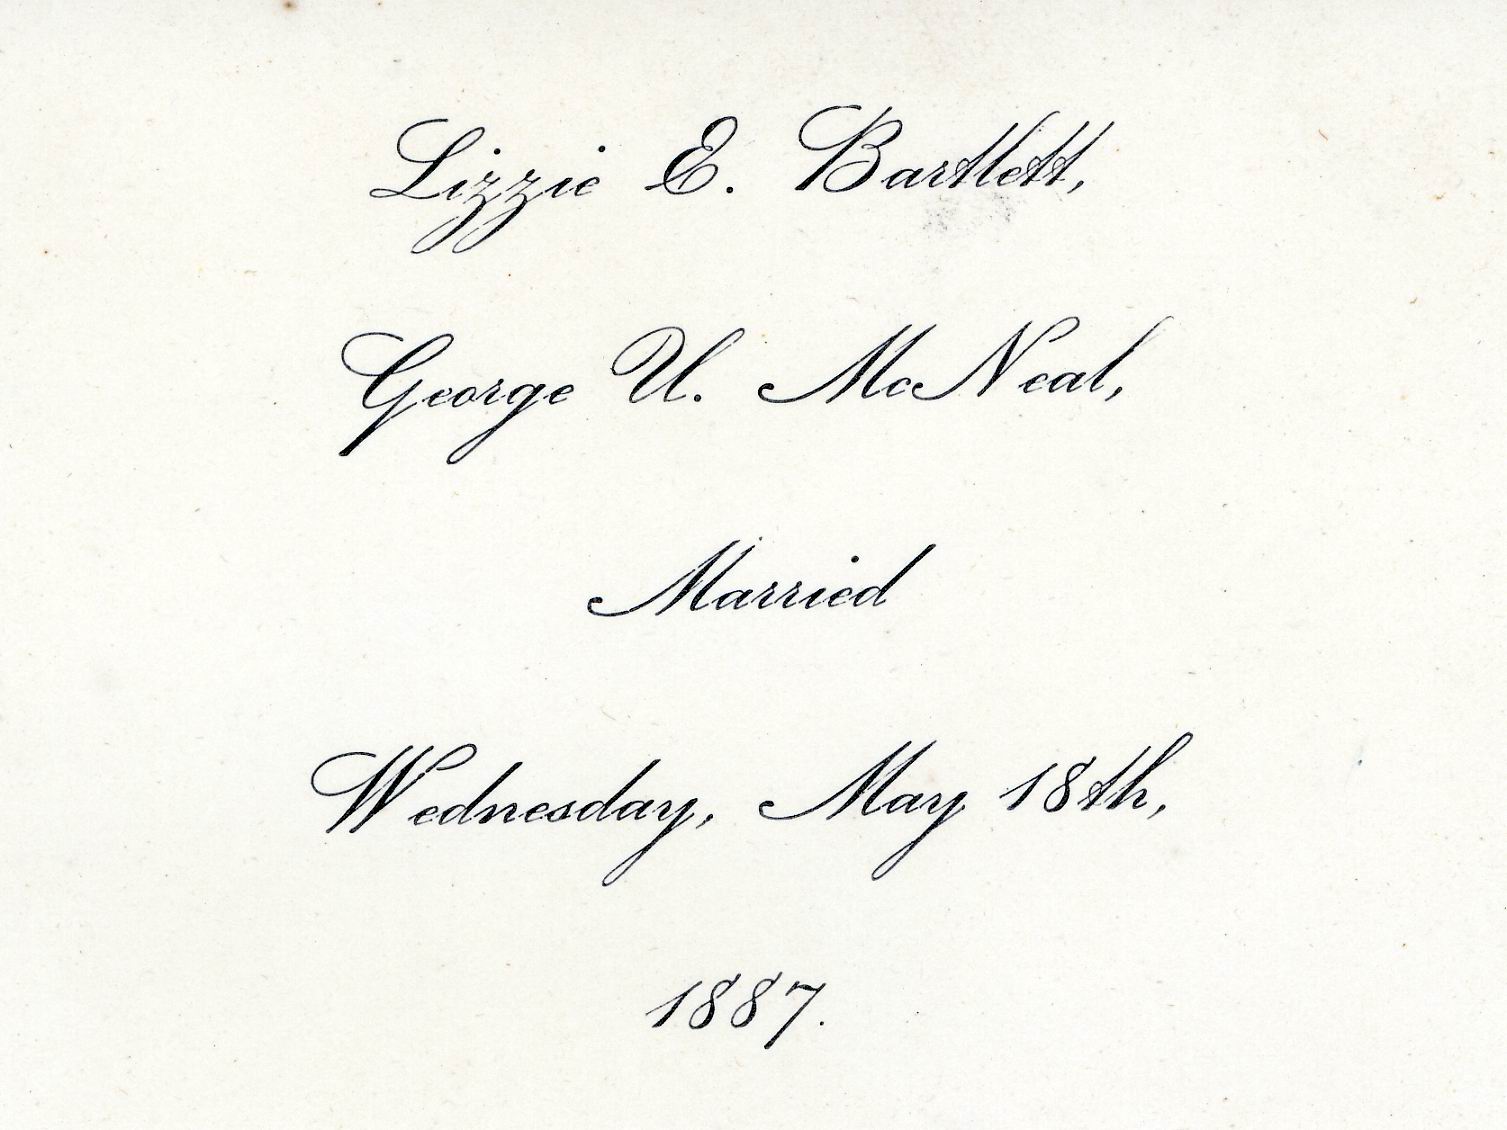 Lizzie E. Bartlett,
George U. McNeal,
Married
Wednesday, May 18th,
1887.